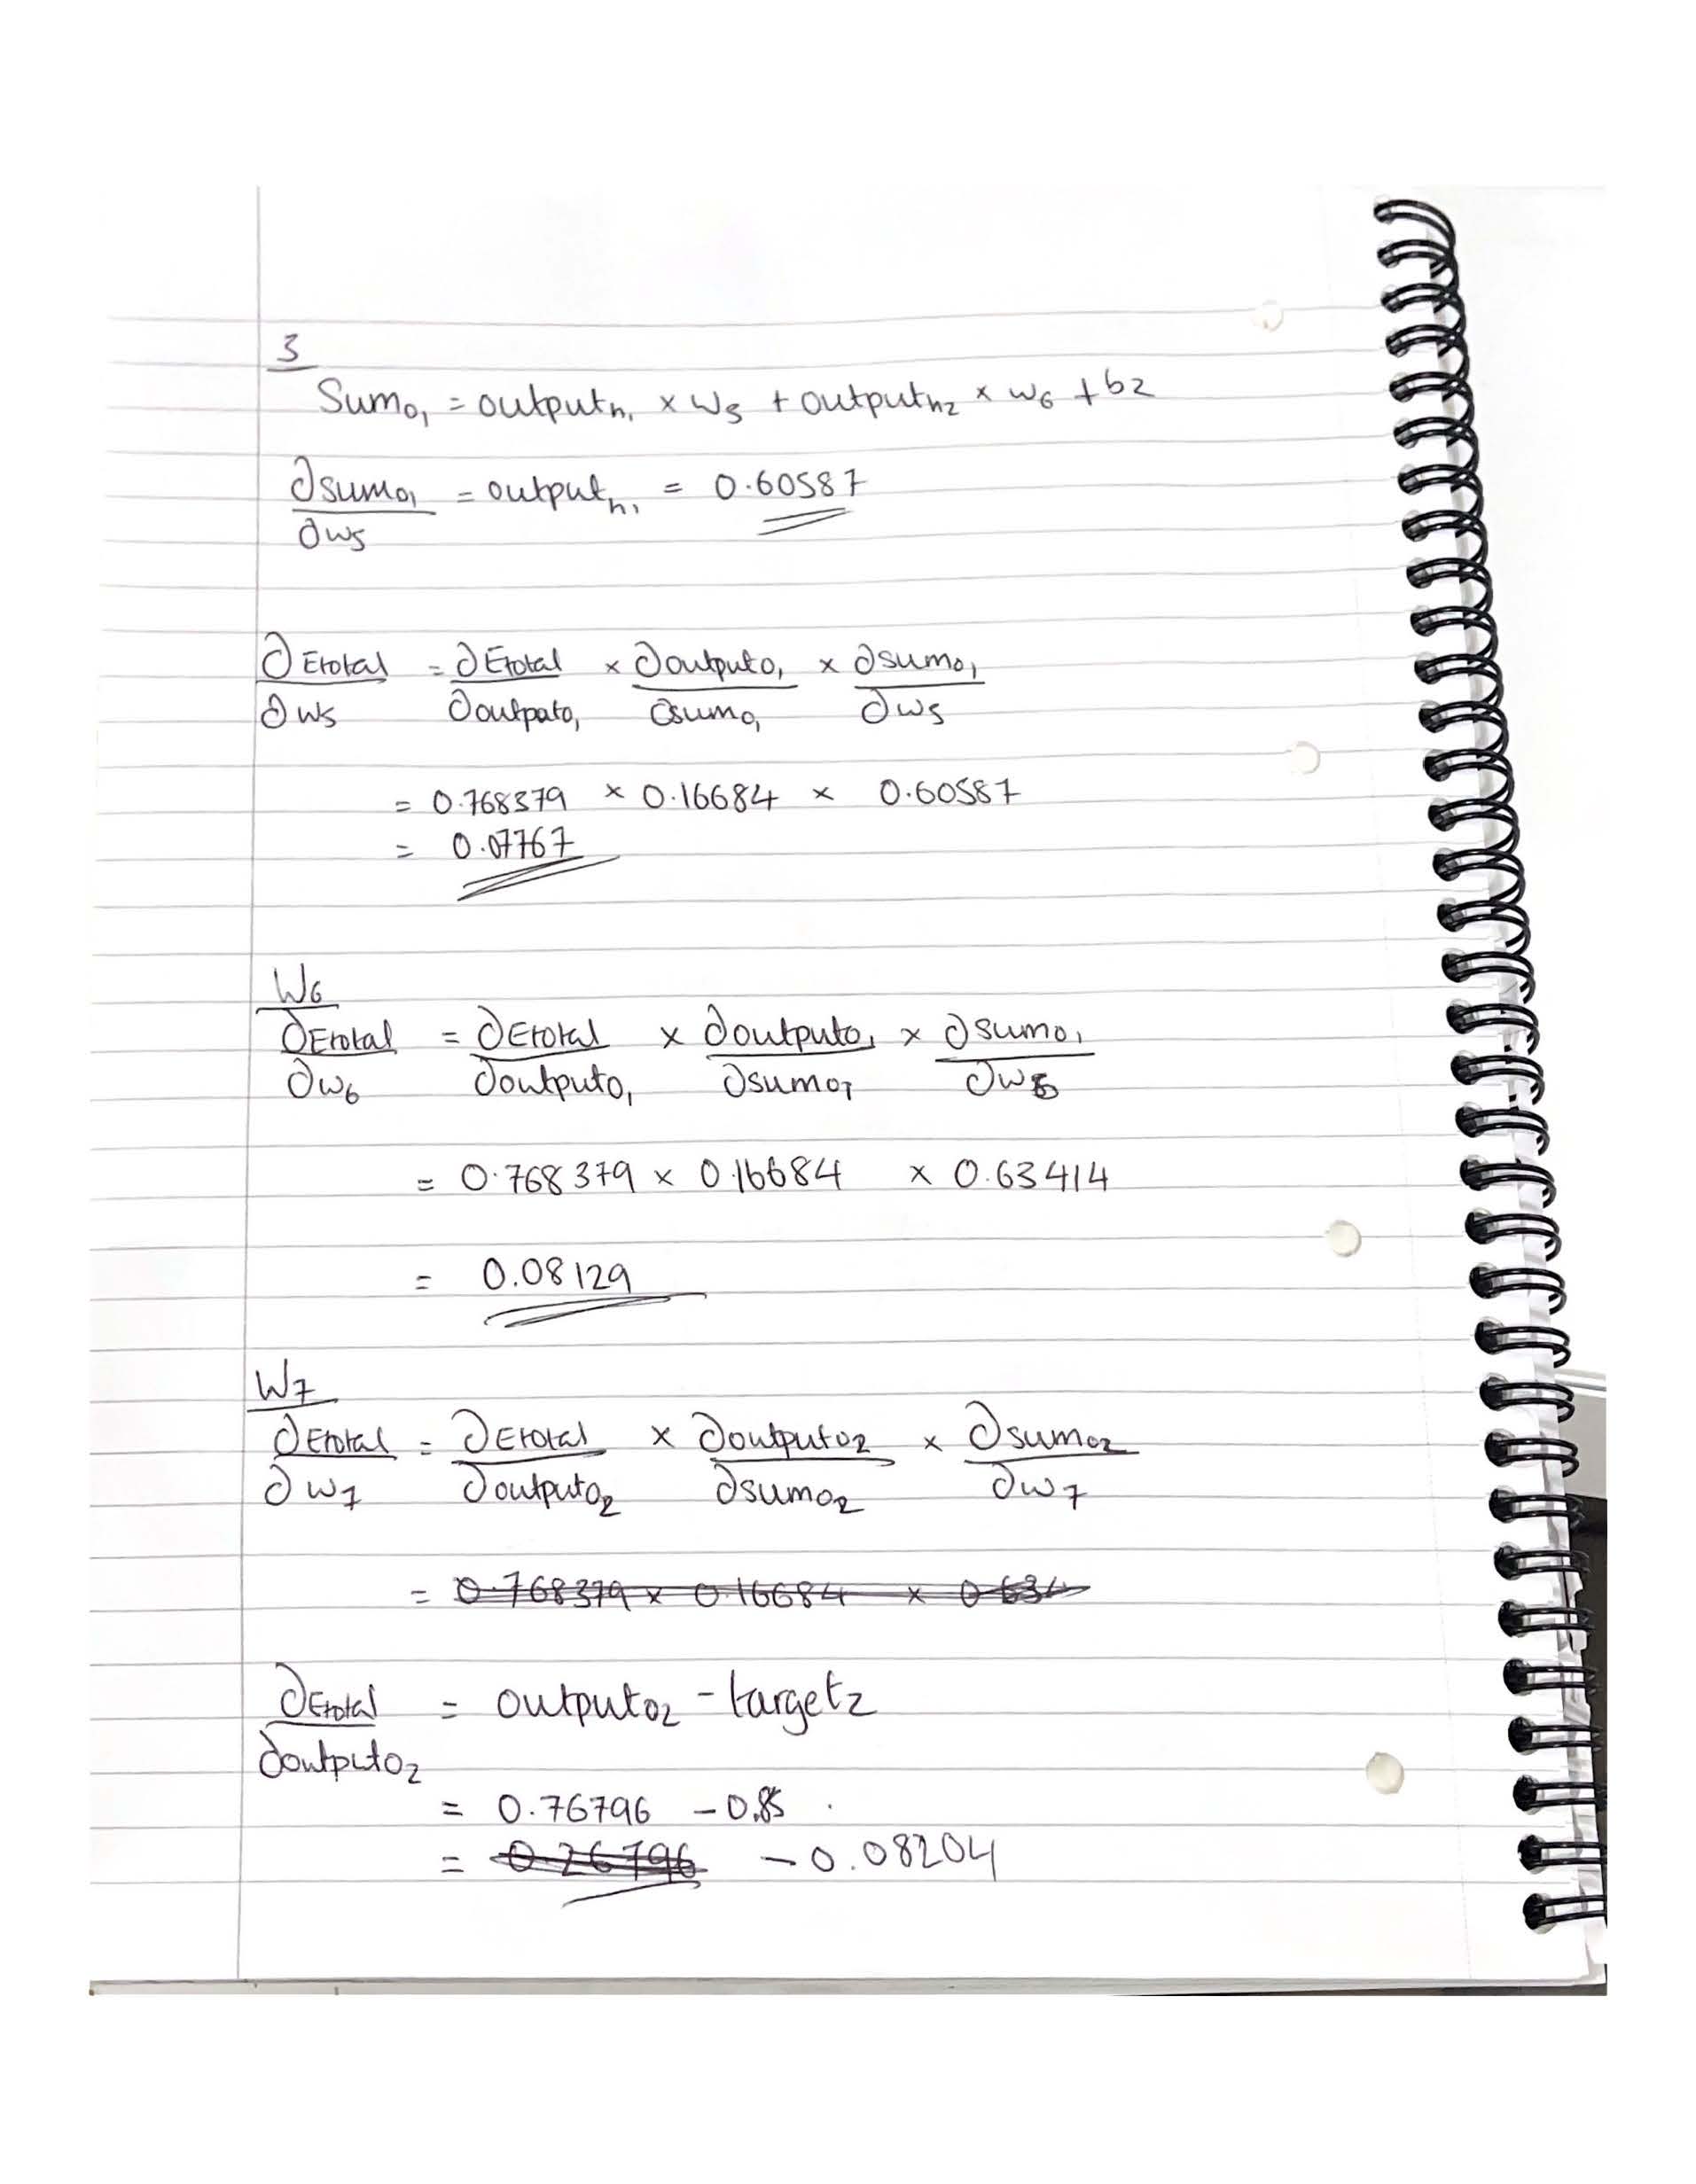 3
Sumo₁ = outputh₁ × w5 + outputh2 × w6 + b2
∂sumo1/∂w5 = outputh₁ = 0.60587
∂Etotal/∂w5 = ∂Etotal/∂outputo₁ × ∂outputo₁/∂sumo₁ × ∂sumo₁/∂w5
= 0.768379 × 0.16684 × 0.60587
= 0.07767
W6
∂Etotal/∂w6 = ∂Etotal/∂outputo₁ × ∂outputo₁/∂sumo₁ × ∂sumo₁/∂w6
= 0.768379 × 0.16684 × 0.63414
= 0.08129
W7
∂Etotal/∂w7 = ∂Etotal/∂outputo2 × ∂outputo2/∂sumo2 × ∂sumo2/∂w7
= 0.768379 × 0.16684 × 0.634
∂Etotal/∂outputo2 = outputo2 - target2
= 0.76796 - 0.85
= 0.26796 - 0.08204